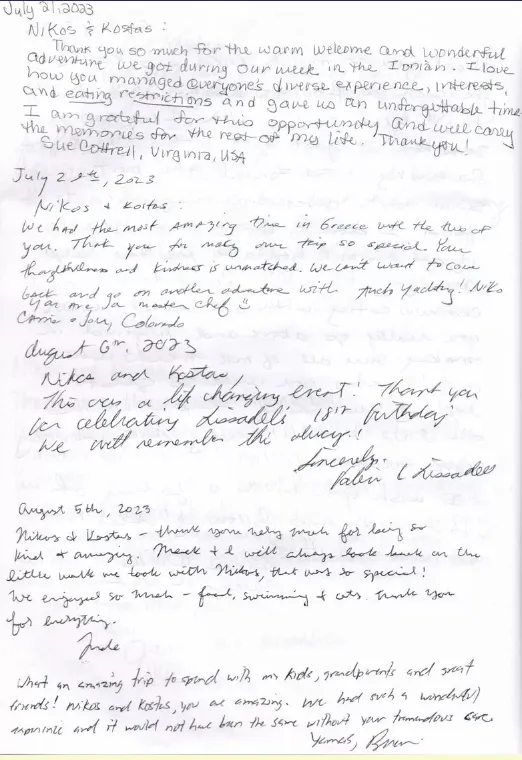 July 21, 2023
Nikos & Kostas:
Thank you so much for the warm welcome and wonderful
adventure we got during our week in the Ionian. I love
how you managed everyone's diverse experience, interests,
and eating restrictions and gave us an unforgettable time.
I am grateful for this opportunity and will carry
the memories for the rest of my life. Thank you!
Sue Cottrell, Virginia, USA
July 2, 2023
Nikos & Kostas:
We had the most amazing time in Greece with the two of
you. Thank you for making our trip so special. Your
thoughtfulness and kindness is unmatched. We can't wait to come
back and go on another adventure with Yachting! Niko
you are a master chef
Colorado
August 6th, 2023
Nikos and Kostas,
This was a life changing event! Thank you
for celebrating Lissadel's 18th birthday
We will remember this always!
Sincerely,
& Lissadel
August 5th, 2023
Nikos & Kostas - thank you very much for being so
kind & amazing. & I will always look back on the
little walk we took with Nikos, that was so special!
We enjoyed so much - food, swimming & cats. Thank you
for everything.
Jude
What an amazing trip to spend with my kids, grandparents and great
friends! Nikos and Kostas, you are amazing. We had such a wonderful
experience and it would not have been the same without your tremendous care.
Yamas,